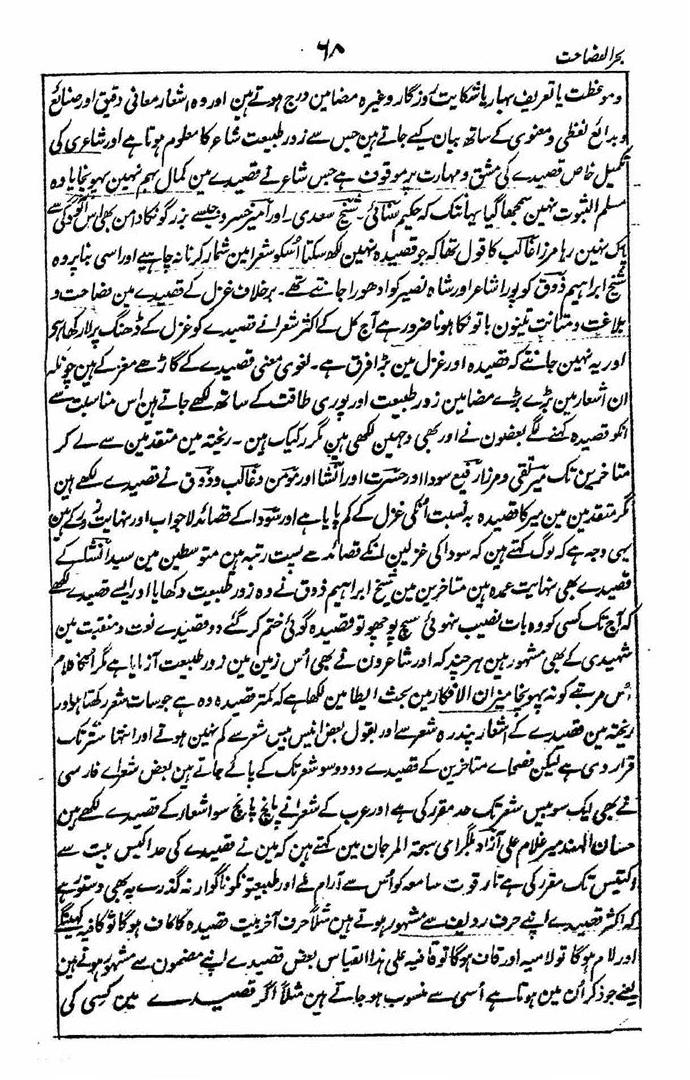 بحر الفصاحت
۶۸
وموعظت یا تعریف بہار یا شکایت روزگار وغیرہ مضامین درج ہوتے ہین اور وہ اشعار معانی دقیق اور صنائع
وبدائع لفظی ومعنوی کے ساتھ بیان کیے جاتے ہین جس سے زور طبیعت شاعر کا معلوم ہوتا ہے اور شاعری کی
تکمیل خاص قصیدے کی مشق ومہارت پر موقوف ہے جس شاعر نے قصیدے مین کمال بہم نہین پہونچایا وہ
مسلم الثبوت نہین سمجھا گیا یہانتک کہ حکیم سنائی۔ شیخ سعدی۔ اور امیر خسرو جیسے بزرگونکا دامن بھی اس آلودگی سے
پاک نہین رہا مرزا غالب کا قول تھا کہ جو قصیدہ نہین لکھ سکتا اُسکو شعرا مین شمار کرنا نہ چاہیے اور اسی بنا پر وہ
شیخ ابراہیم ذوق کو پورا شاعر اور شاہ نصیر کو ادھورا جانتے تھے۔ برخلاف غزل کے قصیدے مین فصاحت و
بلاغت ومتانت تینون باتونکا ہونا ضرور ہے آج کل کے اکثر شعرا نے قصیدے کو غزل کے ڈھنگ پر لا رکھا ہی
اور یہ نہین جانتے کہ قصیدہ اور غزل مین بڑا فرق ہے۔ لغوی معنی قصیدے کے گاڑھے مغز کے ہین چونکہ
ان اشعار مین بڑے بڑے مضامین زور طبیعت اور پوری طاقت کے ساتھ لکھے جاتے ہین اس مناسبت سے
انکو قصیدہ کہنے لگے بعضون نے اور بھی وجہین لکھی ہین مگر رکیک ہین۔ ریختہ مین متقدمین سے لے کر
متاخرین تک میر تقی ومرزا رفیع سودا اور حسرت اور انشا اور مومن وغالب وذوق نے قصیدے لکھے ہین
مگر متقدمین مین میر کا قصیدہ بہ نسبت اُنکی غزل کے کم پایا ہے اور سودا کے قصائد لاجواب اور نہایت زور کے ہین
یہی وجہ ہے کہ لوگ کہتے ہین کہ سودا کی غزلین اُنکے قصائد سے پست رتبہ ہین متوسطین مین سید انشا کے
قصیدے بھی نہایت عمدہ ہین متاخرین مین شیخ ابراہیم ذوق نے وہ زور طبیعت دکھایا اور ایسے قصیدے لکھے
کہ آج تک کسی کو وہ بات نصیب نہوئی سچ پوچھو تو قصیدہ گوئی ختم کر گئے دو قصیدے نعت ومنقبت مین
شہیدی کے بھی مشہور ہین ہرچند کہ اور شاعرون نے بھی اُس زمین مین زور طبیعت آزمایا ہے مگر اُنکا کلام
اُس مرتبے کو نہ پہونچا میزان الافکار مین بحث ایطا مین لکھا ہے کہ کمتر قصیدہ وہ ہے جو سات شعر رکھتا ہو اور
ریختہ مین قصیدے کے اشعار پندرہ شعر سے اور بقول بعض انیس بیس شعر سے کم نہین ہوتے اور انتہا ستر تک
قرار دی ہے لیکن فصحاے متاخرین کے قصیدے دو دو سو شعر تک کے پائے جاتے ہین بعض شعراے فارسی
نے بھی ایک سو بیس شعر تک حد مقرر کی ہے اور عرب کے شعرا نے پانچ پانچ سو اشعار کے قصیدے لکھے ہین
حسان الہند میر غلام علی آزاد بلگرامی سبحۃ المرجان مین کہتے ہین کہ مین نے قصیدے کی حد اکیس بیت سے
اکتیس تک مقرر کی ہے تا قوت سامعہ کو اُس سے آرام ملے اور طبیعتونکو ناگوار نہ گذرے یہ بھی دستور ہے
کہ اکثر قصیدے اپنے حرف ردیف سے مشہور ہوتے ہین مثلاً حرف آخر بیت قصیدہ کا کاف ہوگا تو کافیہ کہینگے
اور لام ہوگا تو لامیہ اور قاف ہوگا تو قافیہ علی ہذا القیاس بعض قصیدے اپنے مضمون سے مشہور ہوتے ہین
یعنے جو ذکر اُن مین ہوتا ہے اُسی سے منسوب ہو جاتے ہین مثلاً اگر قصیدے مین کسی کی